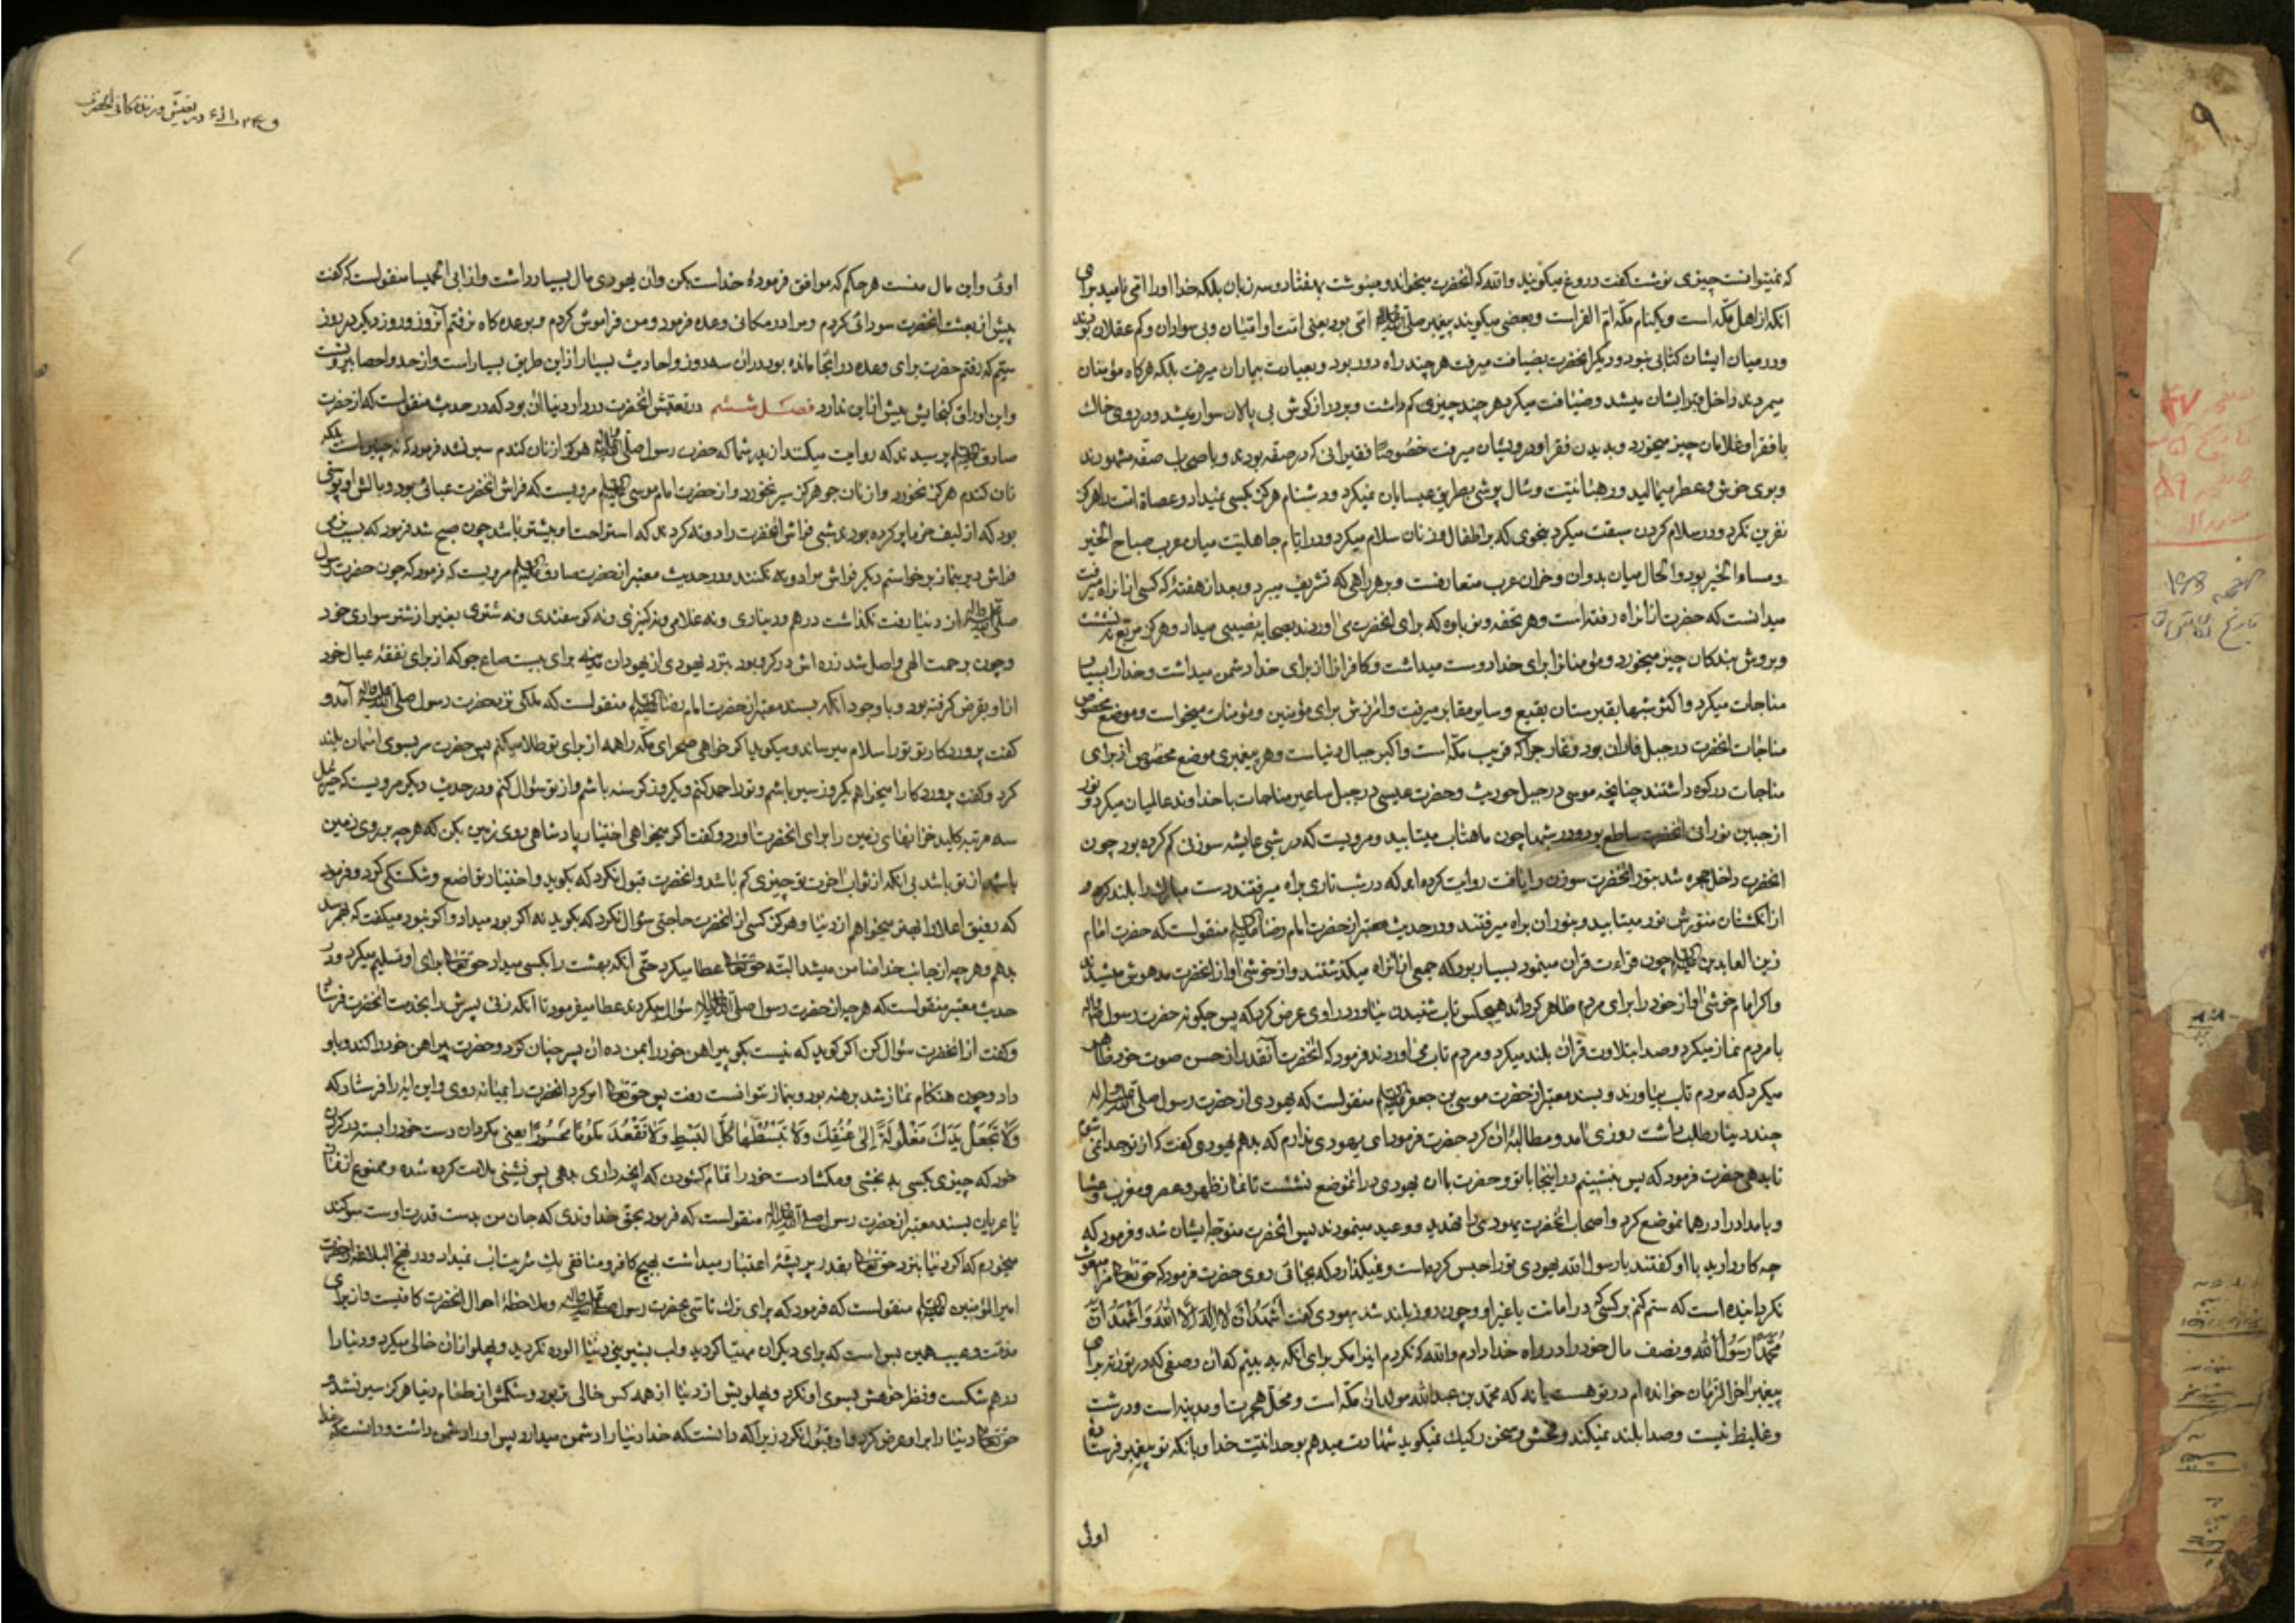 که نمیتوانست چیزی نوشت گفت دروغ میگویند والله که انحضرت میخواند و مینوشت بهفتاد و سه زبان بلکه خدا او را امّی نامید برای
آنکه از اهل مکّه است و یکنام مکّه امّ القراست و بعضی میگویند پیغمبر صلّی الله علیه واله امّی بود یعنی امّت او امّتیان و بی سوادان و کم عقلان بودند
و در میان ایشان کتابی نبود و دیگر انحضرت بضیافت میرفت هر چند راه دور بود و بعیادت بیماران میرفت بلکه هرگاه مؤمنان
میمردند داخل قبر ایشان میشد و ضیافت میکرد هر چند چیزی کم داشت و بر درازگوش بی پالان سوار میشد و در روی خاک
با فقرا و غلامان چیز میخورد و بدیدن فقرا و درویشان میرفت خصوصًا فقیرانی که در صفّه بودند و باصحاب صفّه مشهورند
و بوی خوش و عطر میمالید و در هیئات نیت و شال پوشی بطریق عیسایان نمیکرد و دشنام هرگز بکسی نمیداد و عصاة امّت را هرگز
نفرین نکرد و در سلام کردن سبقت میکرد بنحوی که بر اطفال و زنان سلام میکرد و در ایّام جاهلیّت میان عرب صباح الخیر
و مساء الخیر بود و الحال میان بدوان و خران عرب متعارفست و بر هر راهی که تشریف میبرد و بعد از هفتهٔ که کسی از ان راه میرفت
میدانست که حضرت از انراه رفته است و هر تحفه و نوباوه که برای انحضرت می اوردند بصحابه نصیبی میداد و هرگز مربّع نه نشست
و بروش بندگان چیز میخورد و مؤمنانرا برای خدا دوست میداشت و کافرانرا از برای خدا دشمن میداشت و خدا را بسیار
مناجات میکرد و اکثر شبها بقبرستان بقیع و سایر مقابر میرفت و امرزش برای مؤمنین و مؤمنات میخواست و موضع مخصوص
مناجات انحضرت در جبل فاران بود و غار حرا که قریب مکّه است و اکبر جبال دنیاست و هر پیغمبری موضع مخصوص از برای
مناجات در کوه داشتند چنانچه موسی در جبل حوریث و حضرت عیسی در جبل ساعیر مناجات با خداوند عالمیان میکرد و نور
از جبین نورانی انحضرت ساطع بود و در شبها چون ماهتاب میتابید و مرویست که در شبی عایشه سوزنی گم کرده بود چون
انحضرت داخل حجره شد بنور انحضرت سوزن را یافت روایت کرده اند که در شب تاری براه میرفتند دست مبارک را بلند کرد و
از انگشتان منوّرش نور میتابید و بنور ان براه میرفتند و در حدیث معتبر از حضرت امام رضا علیه السلام منقولست که حضرت امام
زین العابدین علیه السلام چون قراءت قران مینمود بسیار بود که جمعی از انراه میگذشتند و از خوشی اواز انحضرت مدهوش میشدند
و اگر امام خوشی اواز خود را برای مردم ظاهر گرداند هیچکس تاب شنیدن نیاورد راوی عرض کرد که پس چگونه حضرت رسول
با مردم نماز میکرد و صدا بتلاوت قران بلند میکرد و مردم تاب می اوردند فرمود که انحضرت آنقدر از حسن صوت خود ظاهر
میکرد که مردم تاب بیاورند و بسند معتبر از حضرت موسی بن جعفر علیه السلام منقولست که یهودی از حضرت رسول صلّی الله علیه واله
چند دینار طلب داشت روزی نامد و مطالبهٔ ان کرد حضرت فرمود ای یهودی ندارم که بدهم یهودی گفت که از تو جدا نمی شوم
تا بدهی حضرت فرمود که پس بنشینم در اینجا با تو و حضرت با ان یهودی در انموضع نشست تا نماز ظهر و عصر و مغرب و عشا
و بامداد را در همانموضع کرد و اصحاب انحضرت یهودی را تهدید و وعید مینمودند پس انحضرت متوجّه ایشان شد و فرمود که
چه کار دارید با او گفتند یا رسول الله یهودی تو را حبس کرده است و نمیگذارد که بجائی روی حضرت فرمود که حق تعالی مرا مبعوث
نکردانیده است که ستم کنم بر کسی که در امانست یا غیر او و چون روز بلند شد یهودی گفت أَشْهَدُ اَنْ لا اِلهَ اِلَّا اللهُ وَ اَشْهَدُ اَنَّ
مُحَمَّدًا رَسُولُ اللهِ و نصف مال خود را در راه خدا دادم والله که نکردم اینرا مگر برای آنکه به بینم که ان وصفی که در توراة برای
پیغمبر اخر الزمان خوانده ام در تو هست یا نه که محمّد بن عبدالله مولد ان مکّه است و محلّ هجرت او مدینه است و درشت
و غلیظ نیست و صدا بلند نمیکند و فحش و سخن رکیک نمیگوید شهادت میدهم بوحدانیّت خدا و بانکه تو پیغمبر فرستاده
اوئی
در تعیّش و زندگانی انحضرت
اوئی و این مال منست هر حکم که موافق فرمودهٔ خداست بکن و ان یهودی مال بسیار داشت و از ابی الحمیسا منقولست که گفت
پیش از بعثت انحضرت سودائی کردم و مرا در مکانی وعده فرمود و من فراموش کردم و بوعده گاه نرفتم آنروز و روز دیگر در روز
سیّم که رفتم حضرت برای وعده در انجا مانده بود در ان سه روز و احادیث بسیار از این طریق بسیار است و از حد و احصا بیرونست
و این اوراق گنجایش بیش از این ندارد فصل ششم در تعیّش انحضرت در دار دنیا ان بود که در حدیث منقولست که از حضرت
صادق علیه السلام پرسیدند که روایت میکنند از پدر شما که حضرت رسول صلّی الله علیه واله هرگز از نان گندم سیر نشد فرمود که نه چنین است بلکه
نان گندم هرگز نخورد و از نان جو هرگز سیر نخورد و از حضرت امام موسی علیه السلام مرویست که فراش انحضرت عبائی بود و بالش او پوستی
بود که از لیف خرما پر کرده بودند شبی فراش انحضرت را دو ته کردند که استراحتا بیشتر باشد چون صبح شد فرمود که بسبب نرمی
فراش دیر بنماز برخواستم دیگر فراش مرا دو ته نکنند و در حدیث معتبر از حضرت صادق علیه السلام مرویست که فرمود که چون حضرت رسول
صلّی الله علیه واله از دنیا رفت نگذاشت درهم و دیناری و نه غلامی و نه کنیزی و نه گوسفندی و نه شتری بغیر از شتر سواری خود
و چون برحمت الهی واصل شد زره اش در گرو بود بنزد یهودی از یهودان مدینه برای بیست صاع جو که از برای نفقهٔ عیال خود
از او بقرض گرفته بود و با وجود انکه بسند معتبر از حضرت امام رضا علیه السلام منقولست که ملکی نزد حضرت رسول صلّی الله علیه واله آمد و
گفت پروردگارت تو را سلام میرساند و میگوید اگر خواهی صحرای مکّه را همه از برای تو طلا میکنم پس حضرت سر بسوی اسمان بلند
کرد و گفت پروردگارا میخواهم یکروز سیر باشم و تو را حمد کنم و یکروز گرسنه باشم و از تو سؤال کنم و در حدیث دیگر مرویست که جبرئیل
سه مرتبه کلید خزانهای زمین را برای انحضرت اورد و گفت اگر میخواهی اختیار پادشاهی روی زمین بکن که هر چه بر روی زمین
باشد از تو باشد بی انکه از ثواب اخرت تو چیزی کم باشد و انحضرت قبول نکرد که بگوید و اختیار تواضع و شکستگی کرد و فرمود
که رفیق اعلا را بهتر میخواهم از دنیا و هرگز کسی از انحضرت حاجتی سؤال نکرد که بگوید نه اگر بود میداد و اگر نبود میگفت که بهم رسد
بدهم و هر چه از جانب خدا ضامن میشد البتّه حق تعالی عطا میکرد حتّی انکه بهشت را بکسی میداد حق تعالی برای او تسلیم میکرد و در
حدیث معتبر منقولست که هر چه از حضرت رسول صلّی الله علیه واله سؤال میکردند عطا میفرمود تا انکه زنی پسرش را بخدمت انحضرت فرستاد
و گفت از انحضرت سؤال کن اگر گوید که نیست بگو پیراهن خود را بمن ده ان پسر چنان کرد و حضرت پیراهن خود را کند و باو
داد و چون هنگام نماز شد برهنه بود و بنماز نتوانست رفت پس حق تعالی امر کرد انحضرت را بمیانه روی و این ایه را فرستاد که
وَلا تَجْعَلْ يَدَكَ مَغْلُولَةً إِلىٰ عُنُقِكَ وَلا تَبْسُطْهٰا كُلَّ الْبَسْطِ وَلا تَقْعُدَ مَلُومًا مَحْسُورًا یعنی مگردان دست خود را بسته در گردن
خود که چیزی بکسی نه بخشی و مگشا دست خود را تمام گشودن که انچه داری بدهی پس نشینی ملامت کرده شده و ممنوع از نماز
یا عریان بسند معتبر از حضرت رسول صلّی الله علیه واله منقولست که فرمود بحقّ خداوندی که جان من بدست قدرت اوست سوگند
میخورم که اگر دنیا بنزد حق تعالی بقدر پر پشّهٔ اعتبار میداشت بهیچ کافر و منافقی یک شربت اب نمیداد و در نهج البلاغه از حضرت
امیر المؤمنین علیه السلام منقولست که فرمود که برای ترک تاسّی بحضرت رسول صلّی الله علیه واله و ملاحظهٔ احوال انحضرت کافیست و از برای
مذمّت و عیب همین بس است که برای دیگران مهیّا گردید و لب بشیرینی دنیا الوده نکردید و پهلو از ان خالی میکرد و دنیا را
درهم شکست و نظر خواهش بسوی او نکرد و پهلویش از دنیا از همه کس خالی تر بود و شکمش از طعام دنیا هرگز سیر نشد و
حق تعالی دنیا را بر او عرض کرد و او قبول نکرد زیرا که دانست که خدا دنیا را دشمن میدارد پس او را دشمن داشت و دانست که خدا